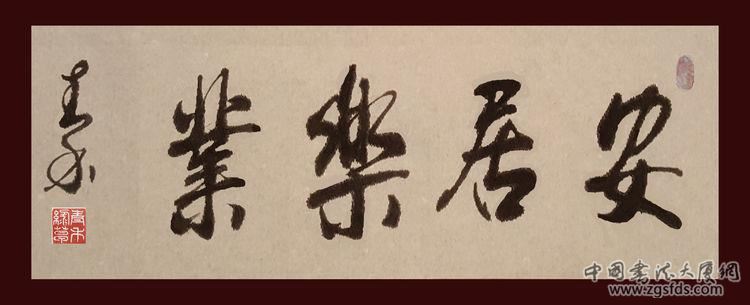 安居樂業
中國書法大廈網
www.zgsfds.com